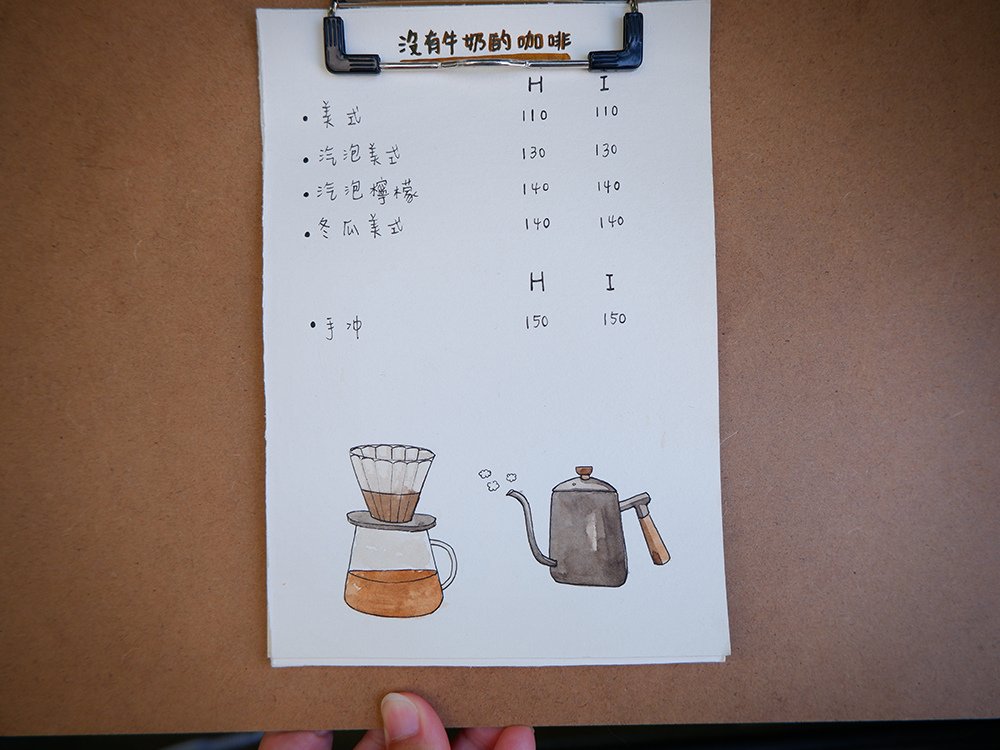 沒有牛奶的咖啡
H I
• 美式 110 110
• 汽泡美式 130 130
• 汽泡檸檬 140 140
• 冬瓜美式 140 140
H I
• 手冲 150 150